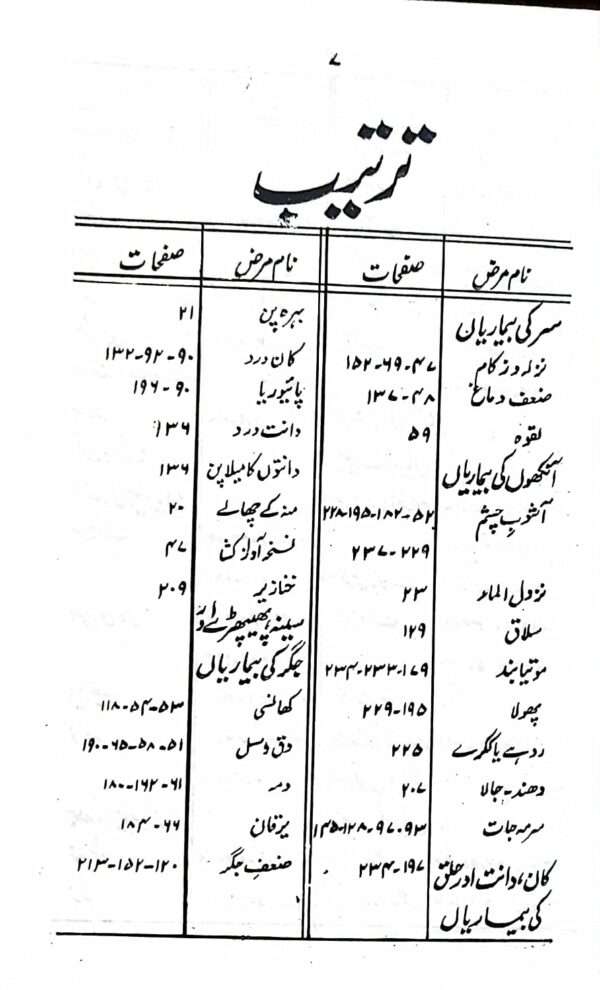 ۷
ترتیب
نام مرض صفحات
سر کی بیماریاں
نزلہ و زکام ۴۷-۶۹-۱۵۲
ضعف دماغ ۴۸-۱۳۷
لقوہ ۵۹
آنکھوں کی بیماریاں
آشوبِ چشم ۵۲-۱۸۲-۱۹۵-۲۲۸
۲۲۹-۲۳۷
نزول الماء ۲۳
سلاق ۱۲۹
موتیا بند ۱۷۹-۲۳۳-۲۳۴
پھولا ۱۹۵-۲۲۹
روہے یا ککرے ۲۲۵
دھند-جالا ۲۰۷
سرمہ جات ۹۳-۹۷-۱۲۸-۱۴۵
۱۹۷-۲۳۴
کان، دانت اور حلق
کی بیماریاں
نام مرض صفحات
بہرہ پن ۲۱
کان درد ۹۰-۹۲-۱۳۲
پائیوریا ۹۰-۱۹۶
دانت درد ۱۳۶
دانتوں کا میلا پن ۱۳۶
منہ کے چھالے ۲۰
نسخہ آواز کشا ۴۷
خنازیر ۲۰۹
سینہ، پھیپھڑے اور
جگر کی بیماریاں
کھانسی ۵۳-۵۴-۱۱۸
دق و سل ۵۱-۵۸-۶۵-۱۹۰
دمہ ۶۱-۱۶۲-۱۸۰
یرقان ۶۶-۱۸۴
ضعفِ جگر ۱۲۰-۱۵۲-۲۱۳